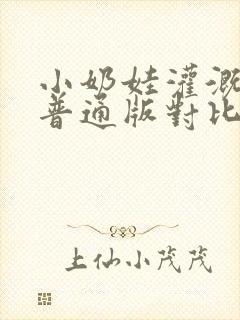 小奶娃灌溉
普通版對比
上仙小茂茂